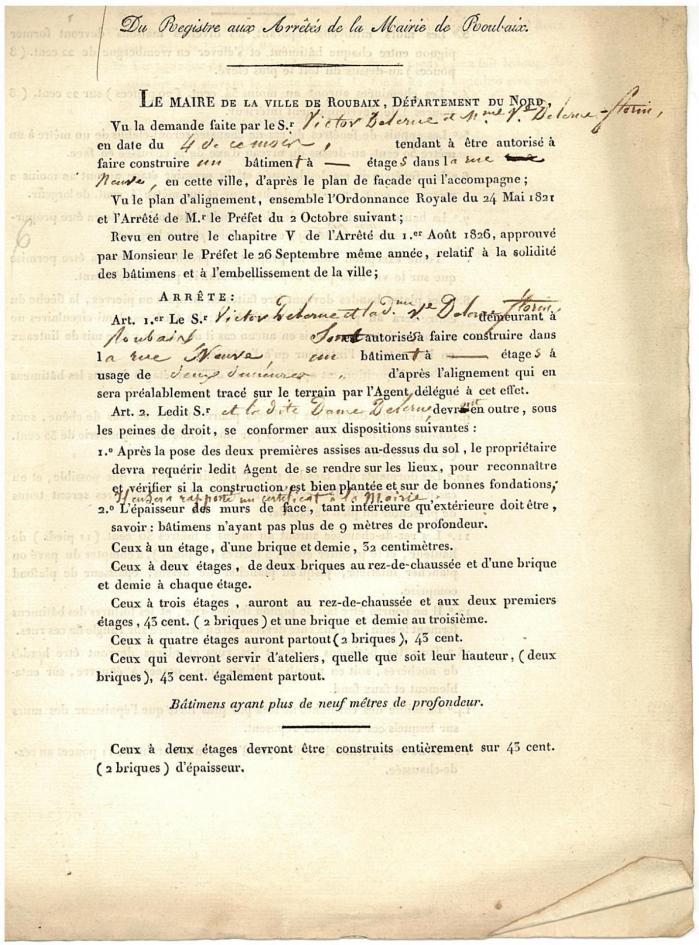 Du Registre aux Arrêtés de la Mairie de Roubaix.
LE MAIRE DE LA VILLE DE ROUBAIX, DÉPARTEMENT DU NORD,
Vu la demande faite par le S.r Victor Delerue et Mme Ve Delerue-florin,
en date du 4 de ce mois, tendant à être autorisé à
faire construire un bâtiment à — étages dans la rue
Neuve, en cette ville, d'après le plan de façade qui l'accompagne;
Vu le plan d'alignement, ensemble l'Ordonnance Royale du 24 Mai 1821
et l'Arrêté de M.r le Préfet du 2 Octobre suivant;
Revu en outre le chapitre V de l'Arrêté du 1.er Août 1826, approuvé
par Monsieur le Préfet le 26 Septembre même année, relatif à la solidité
des bâtimens et à l'embellissement de la ville;
ARRÊTE:
Art. 1.er Le S.r Victor Delerue et la dme Ve Delerue florin, demeurant à
Roubaix Sont autorisés à faire construire dans
la rue Neuve, un bâtiment à — étages à
usage de deux d'après l'alignement qui en
sera préalablement tracé sur le terrain par l'Agent délégué à cet effet.
Art. 2. Ledit S.r et la dite Dame Delerue devront en outre, sous
les peines de droit, se conformer aux dispositions suivantes:
1.o Après la pose des deux premières assises au-dessus du sol, le propriétaire
devra requérir ledit Agent de se rendre sur les lieux, pour reconnaître
et vérifier si la construction est bien plantée et sur de bonnes fondations;
Il en sera rapporté un certificat à la Mairie.
2.o L'épaisseur des murs de face, tant intérieure qu'extérieure doit être,
savoir: bâtimens n'ayant pas plus de 9 mètres de profondeur.
Ceux à un étage, d'une brique et demie, 32 centimètres.
Ceux à deux étages, de deux briques au rez-de-chaussée et d'une brique
et demie à chaque étage.
Ceux à trois étages, auront au rez-de-chaussée et aux deux premiers
étages, 43 cent. (2 briques) et une brique et demie au troisième.
Ceux à quatre étages auront partout (2 briques), 43 cent.
Ceux qui devront servir d'ateliers, quelle que soit leur hauteur, (deux
briques), 43 cent. également partout.
Bâtimens ayant plus de neuf mètres de profondeur.
Ceux à deux étages devront être construits entièrement sur 43 cent.
(2 briques) d'épaisseur.